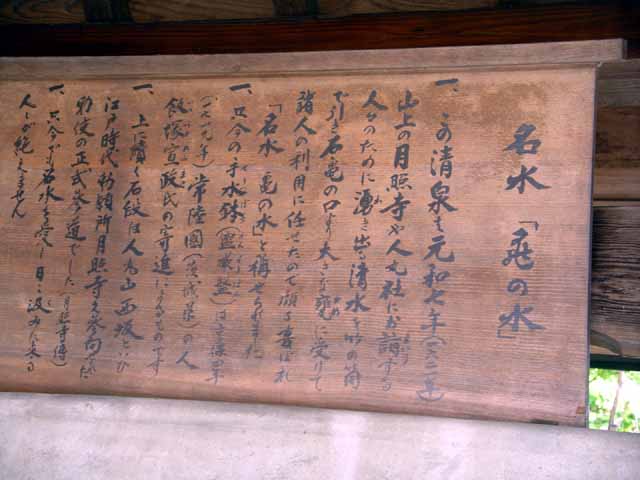 名水「亀の水」
一、この清泉は元和七年(一六二一年)
山上の月照寺や人丸社にお詣する
人々のために湧き出る清水を竹の筒
で引き石亀の口より大きな甕に受けて
諸人の利用に任せたので頗る喜ばれ
「名水 亀の水」と称せられました
一、只今の手水鉢(盥漱盤)は享保四年
(一七一九年)常陸国(茨城県)の人
飯塚宣政氏の寄進によるものです
一、上に續く石段は人丸山西坂といひ
江戸時代勅願所月照寺え参向された
勅使の正式参道でした(月照寺傳)
一、只今でも名水を愛し日々汲みに来る
人々が絶えません